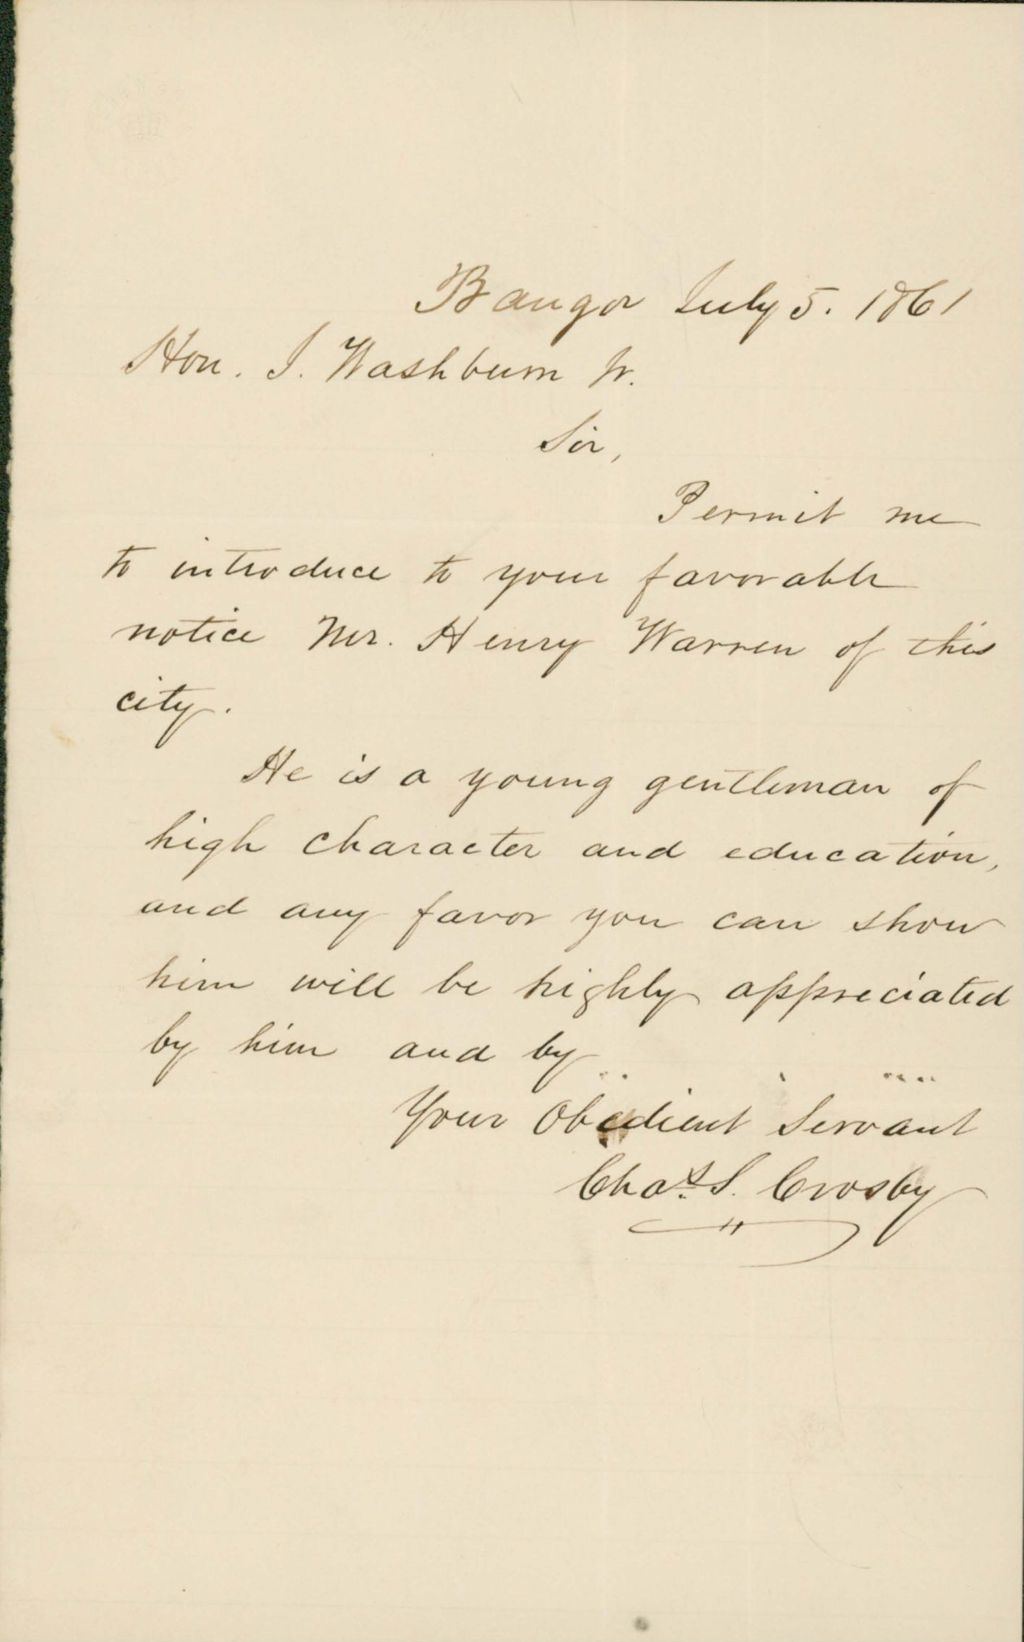 Bangor July 5. 1861
Hon. I. Washburn Jr.
Sir,
Permit me
to introduce to your favorable
notice Mr. Henry Warren of this
city.
He is a young gentleman of
high character and education,
and any favor you can show
him will be highly appreciated
by him and by
Your Obedient Servant
Chas. S. Crosby